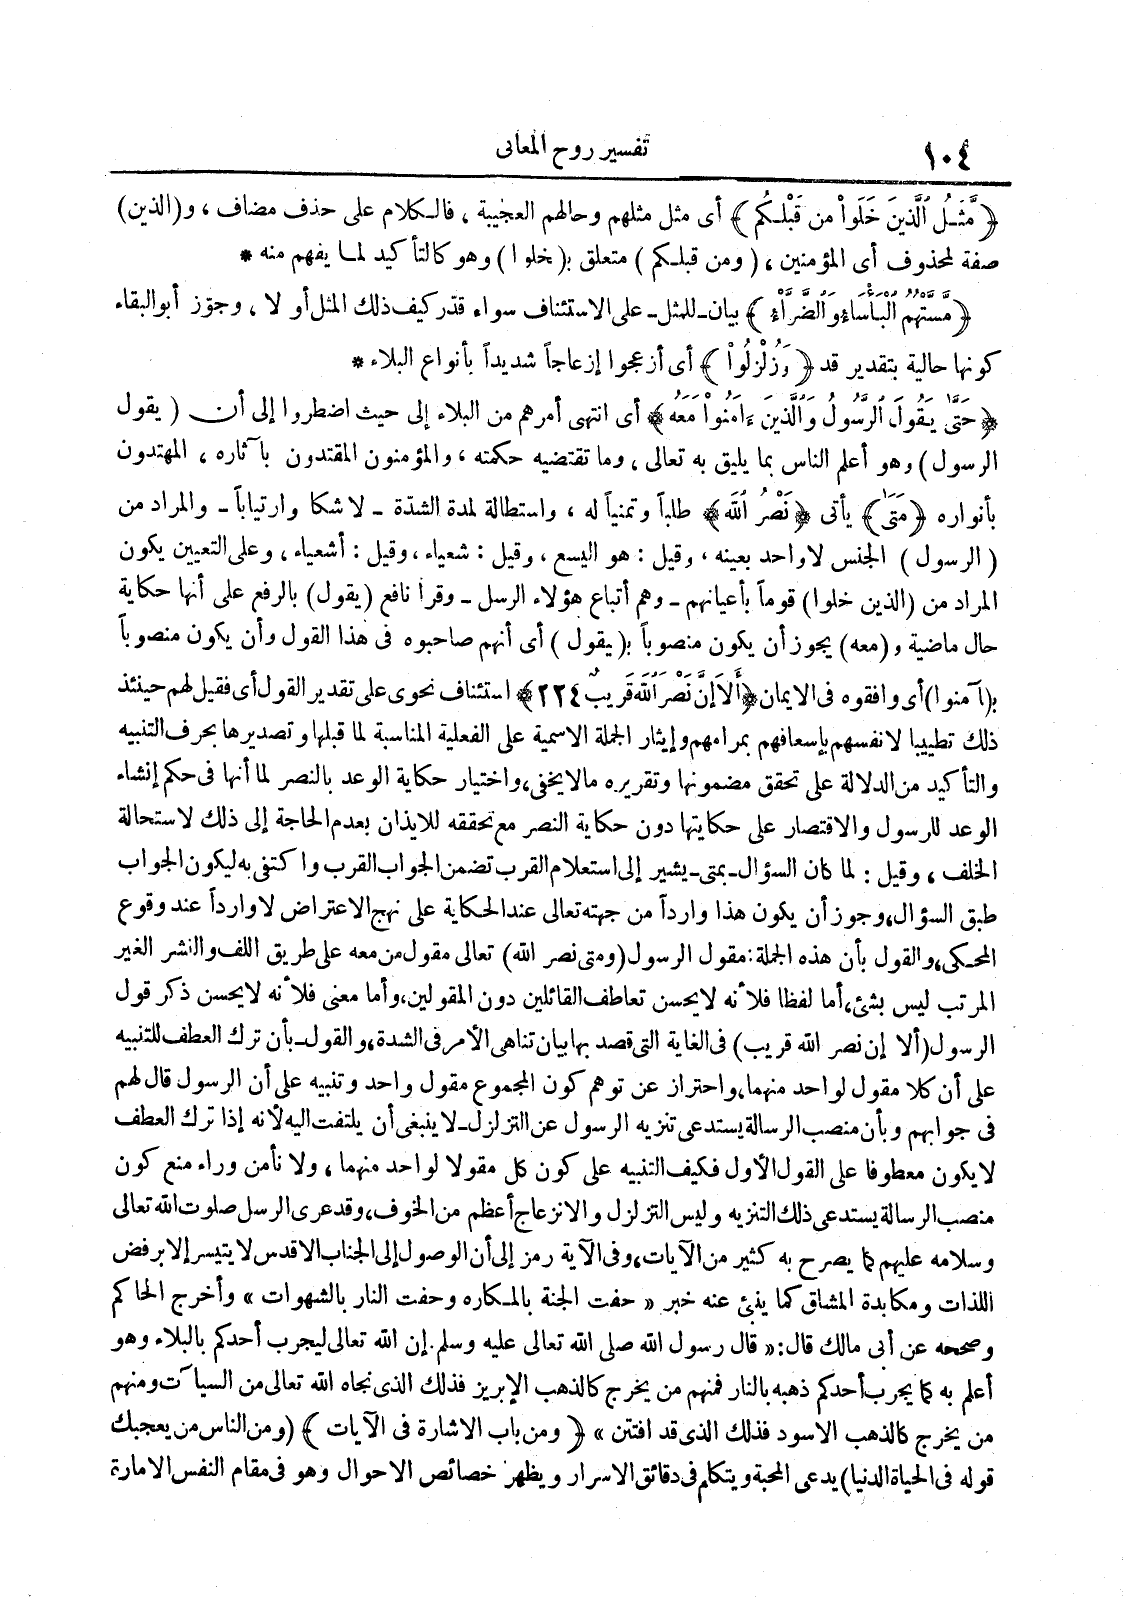 ١٠٤ تفسير روح المعانى
﴿ مَّثَلُ ٱلَّذِينَ خَلَوْاْ من قَبْلِكُم ﴾ أى مثل مثلهم وحالهم العجيبة ، فالكلام على حذف مضاف ، و(الذين)
صفة لمحذوف أى المؤمنين ، ( ومن قبلكم ) متعلق بـ(خلوا ) وهو كالتأكيد لما يفهم منه *
﴿ مَّسَّتْهُمُ الْبَأْسَاءُ وَالضَّرَّاءُ ﴾ بيان ـ للمثل ـ على الاستئناف سواء قدر كيف ذلك المثل أو لا ، وجوّز أبو البقاء
كونها حالية بتقدير قد ﴿ وَزُلْزِلُواْ ﴾ أى أزعجوا إزعاجاً شديداً بأنواع البلاء *
﴿ حَتَّىٰ يَقُولَ ٱلرَّسُولُ وَٱلَّذِينَ ءَامَنُواْ مَعَهُ ﴾ أى انتهى أمرهم من البلاء إلى حيث اضطروا إلى أن ( يقول
الرسول ) وهو أعلم الناس بما يليق به تعالى ، وما تقتضيه حكمته ، والمؤمنون المقتدون بآثاره ، المهتدون
بأنواره ﴿ مَتَىٰ ﴾ يأتى ﴿ نَصْرُ ٱللَّه ﴾ طلباً وتمنياً له ، واستطالة لمدة الشدّة ـ لا شكا وارتياباً ـ والمراد من
( الرسول ) الجنس لاواحد بعينه ، وقيل : هو اليسع ، وقيل : شعياء ، وقيل : أشعياء ، وعلى التعيين يكون
المراد من (الذين خلوا) قوماً بأعيانهم ـ وهم أتباع هؤلاء الرسل ـ وقرأ نافع (يقول) بالرفع على أنها حكاية
حال ماضية و (معه) يجوز أن يكون منصوباً بـ(يقول ) أى أنهم صاحبوه فى هذا القول وأن يكون منصوباً
بـ(آمنوا) أى وافقوه فى الايمان ﴿أَلَا إِنَّ نَصْرَ ٱللَّه قَرِيبٌ ٢٢٤﴾ استئناف نحوى على تقدير القول أى فقيل لهم حينئذ
ذلك تطييبا لانفسهم بإسعافهم بمرامهم وإيثار الجملة الاسمية على الفعلية المناسبة لما قبلها وتصديرها بحرف التنبيه
والتأكيد من الدلالة على تحقق مضمونها وتقريره مالا يخفى ، واختيار حكاية الوعد بالنصر لما أنها فى حكم إنشاء
الوعد للرسول والاقتصار على حكايتها دون حكاية النصر مع تحققه للايذان بعدم الحاجة إلى ذلك لاستحالة
الخلف ، وقيل : لما كان السؤال ـ بمتى ـ يشير إلى استعلام القرب تضمن الجواب القرب واكتفى به ليكون الجواب
طبق السؤال ، وجوز أن يكون هذا وارداً من جهته تعالى عند الحكاية على نهج الاعتراض لاوارداً عند وقوع
المحكى ، والقول بأن هذه الجملة : مقول الرسول (ومتى نصر الله) تعالى مقول من معه على طريق اللف والنشر الغير
المرتب ليس بشئ ، أما لفظا فلأنه لا يحسن تعاطف القائلين دون المقولين ، وأما معنى فلأنه لا يحسن ذكر قول
الرسول (ألا إن نصر الله قريب) فى الغاية التى قصد بها بيان تناهى الأمر فى الشدة ، والقول ـ بأن ترك العطف للتنبيه
على أن كلا مقول لواحد منهما ، واحتراز عن توهم كون المجموع مقول واحد وتنبيه على أن الرسول قال لهم
فى جوابهم وبأن منصب الرسالة يستدعى تنزيه الرسول عن التزلزل ـ لا ينبغى أن يلتفت اليه لأنه إذا ترك العطف
لا يكون معطوفا على القول الأول فكيف التنبيه على كون كل مقولا لواحد منهما ، ولا نأمن وراء منع كون
منصب الرسالة يستدعى ذلك التنزيه وليس التزلزل والانزعاج أعظم من الخوف ، وقد عرى الرسل صلوت الله تعالى
وسلامه عليهم كما يصرح به كثير من الآيات ، وفى الآية رمز إلى أن الوصول إلى الجناب الاقدس لا يتيسر إلا برفض
اللذات ومكابدة المشاق كما ينبئ عنه خبر « حفت الجنة بالمكاره وحفت النار بالشهوات » وأخرج الحاكم
وصححه عن أبى مالك قال : « قال رسول الله صلى الله تعالى عليه وسلم . إن الله تعالى ليجرب أحدكم بالبلاء وهو
أعلم به كما يجرب أحدكم ذهبه بالنار فمنهم من يخرج كالذهب الإبريز فذلك الذى نجاه الله تعالى من السيآت ومنهم
من يخرج كالذهب الاسود فذلك الذى قد افتتن » ﴿ ومن باب الاشارة فى الآيات ﴾ (ومن الناس من يعجبك
قوله فى الحياة الدنيا) يدعى المحبة ويتكلم فى دقائق الاسرار ويظهر خصائص الاحوال وهو فى مقام النفس الامارة